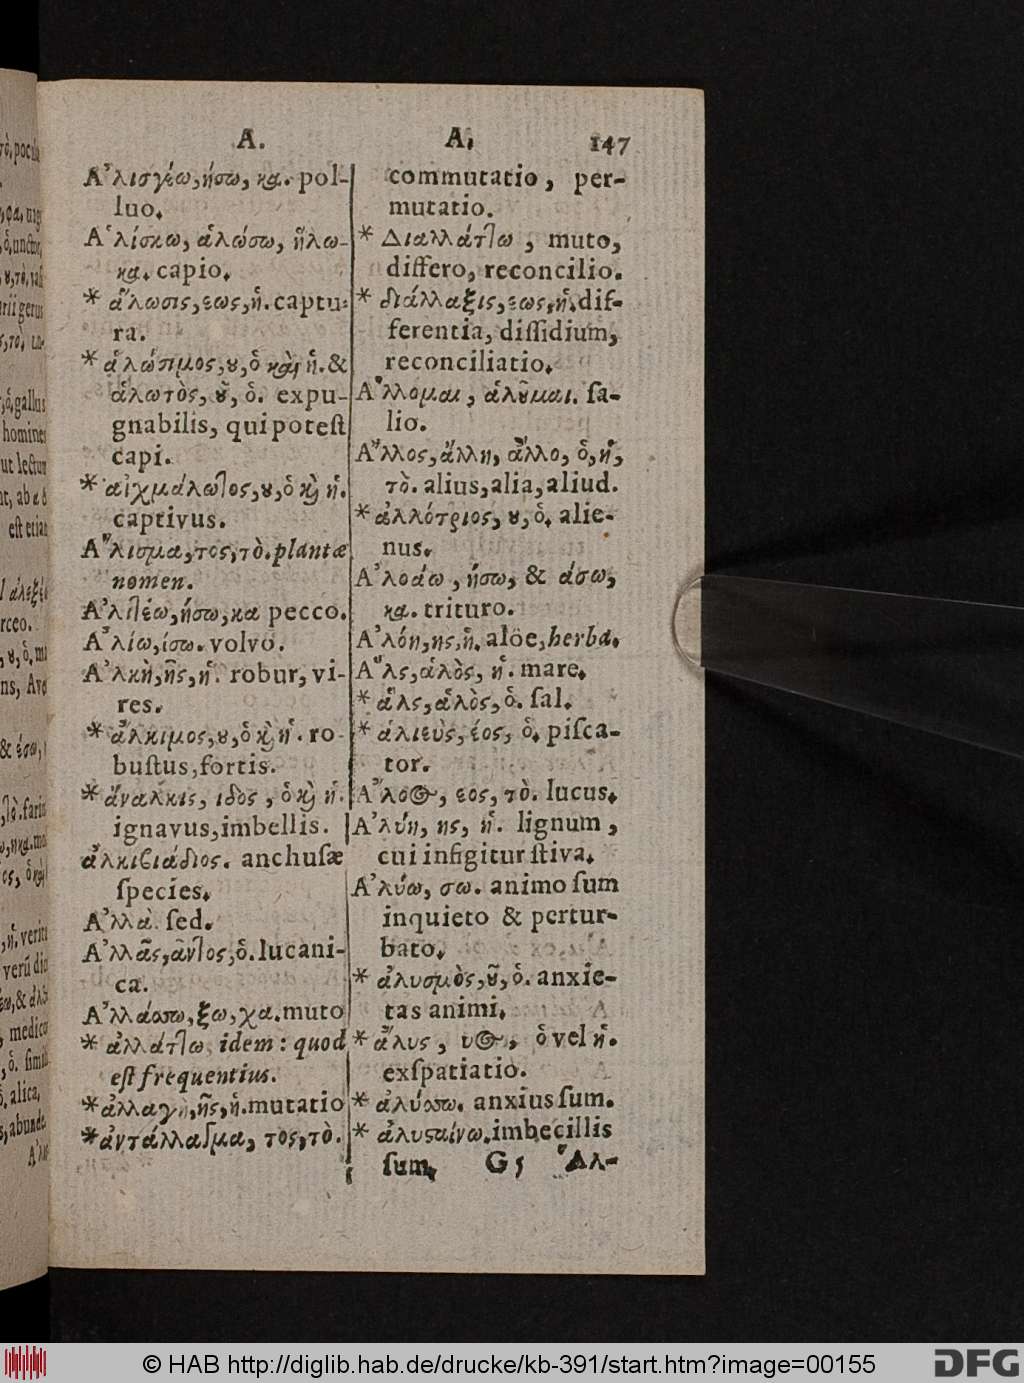 A. A. 147
Ἀλισγέω, ήσω, κα. pol-
luo.
Ἁλίσκω, ἁλώσω, ἥλω-
κα. capio.
* ἅλωσις, εως, ἡ. captu-
ra.
* ἁλώσιμος, ου, ὁ καὶ ἡ. &
ἁλωτὸς, οῦ, ὁ. expu-
gnabilis, qui poteſt
capi.
* αἰχμάλωτος, ου, ὁ καὶ ἡ.
captivus.
Ἄλισμα, τος, τὸ. plantæ
nomen.
Ἀλιτέω, ήσω, κα pecco.
Ἀλίω, ίσω. volvo.
Ἀλκὴ, ῆς, ἡ. robur, vi-
res.
* ἄλκιμος, ου, ὁ καὶ ἡ. ro-
buſtus, fortis.
* ἄναλκις, ιδος, ὁ καὶ ἡ.
ignavus, imbellis.
ἀλκιβιάδιος. anchuſæ
ſpecies.
Ἀλλὰ ſed.
Ἀλλᾶς, ᾶντος, ὁ. lucani-
ca.
Ἀλλάσσω, ξω, χα. muto
* ἀλλάττω idem: quod
eſt frequentius.
* ἀλλαγὴ, ῆς, ἡ. mutatio
* ἀντάλλαγμα, τος, τὸ.
commutatio, per-
mutatio.
* Διαλλάττω, muto,
differo, reconcilio.
* διάλλαξις, εως, ἡ. dif-
ferentia, diſſidium,
reconciliatio.
Ἅλλομαι, ἁλοῦμαι. ſa-
lio.
Ἄλλος, ἄλλη, ἄλλο, ὁ, ἡ,
τὸ. alius, alia, aliud.
* ἀλλότριος, ου, ὁ. alie-
nus.
Ἀλοάω, ήσω, & άσω,
κα. trituro.
Ἀλόη, ης, ἡ. aloë, herba.
Ἅλς, ἁλὸς, ἡ. mare.
* ἅλς, ἁλὸς, ὁ. ſal.
* ἁλιεὺς, έος, ὁ. piſca-
tor.
Ἄλσος, εος, τὸ. lucus.
Ἀλύη, ης, ἡ. lignum,
cui infigitur ſtiva.
Ἀλύω, σω. animo ſum
inquieto & pertur-
bato.
* ἀλυσμὸς, οῦ, ὁ. anxie-
tas animi.
* ἄλυς, υος, ὁ vel ἡ.
exſpatiatio.
* ἀλύσσω. anxius ſum.
* ἀλυσταίνω. imbecillis
ſum. G 5 Ἀλ-
© HAB http://diglib.hab.de/drucke/kb-391/start.htm?image=00155
DFG